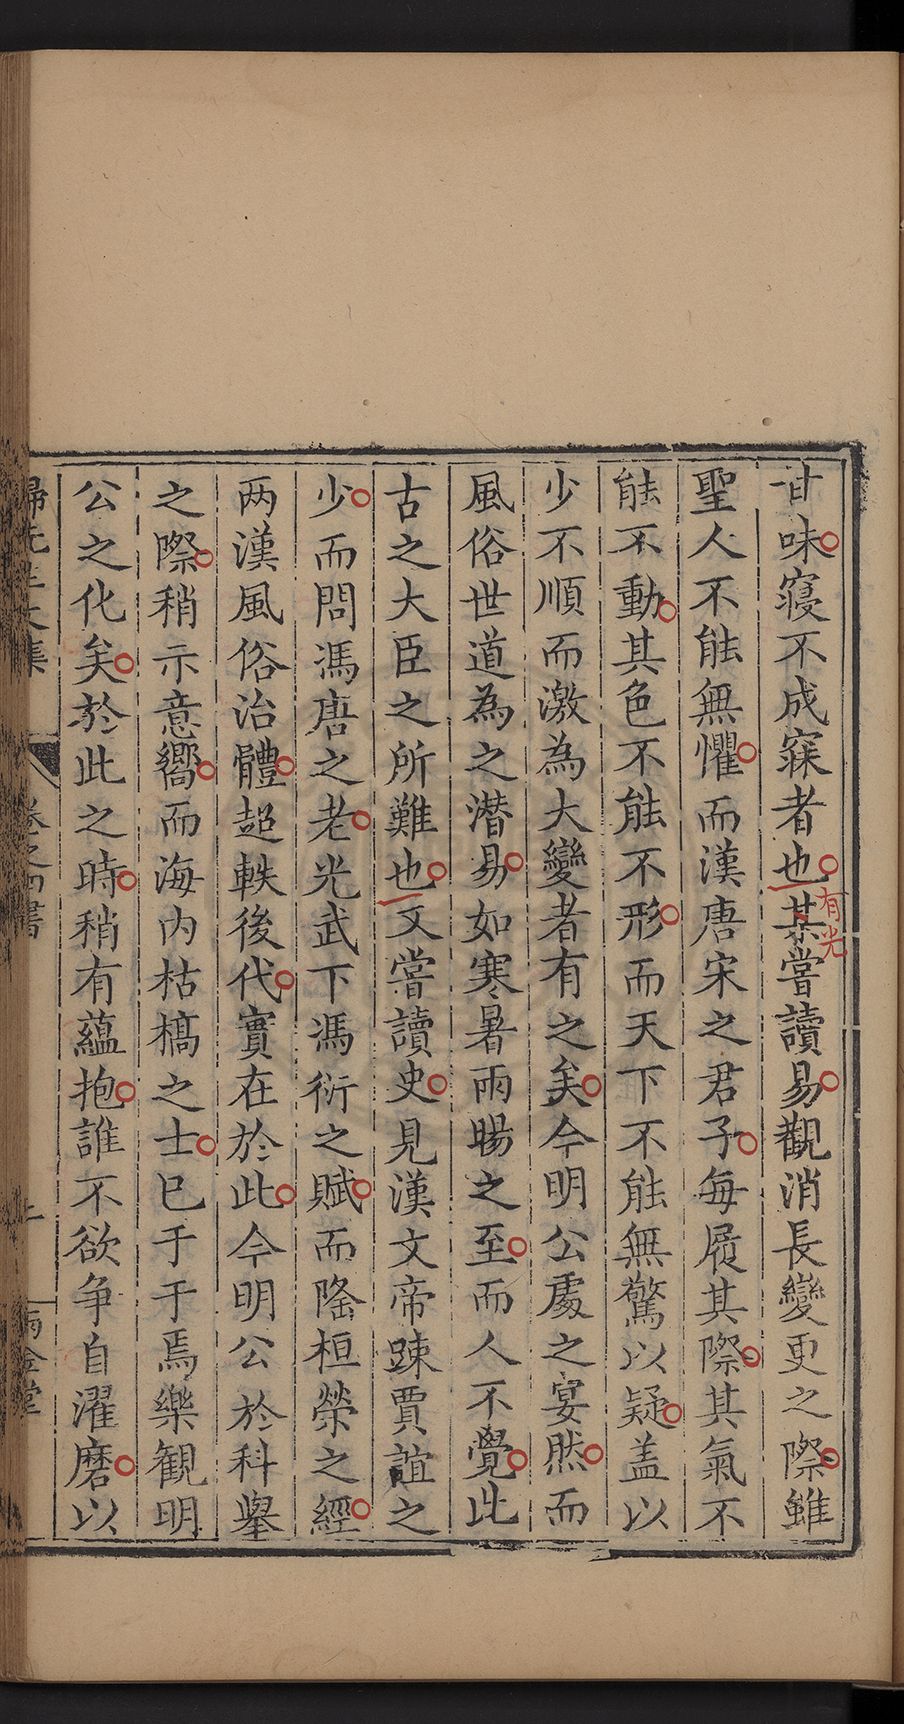 甘味寢不成寐者也某嘗讀易觀消長變更之際雖
有光
聖人不能無懼而漢唐宋之君子每履其際其氣不
能不動其色不能不形而天下不能無驚以疑盖以
少不順而激為大變者有之矣今明公處之宴然而
風俗世道為之潛易如寒暑雨暘之至而人不覺此
古之大臣之所難也又嘗讀史見漢文帝踈賈誼之
少而問馮唐之老光武下馮衍之賦而隆桓榮之經
两漢風俗治體超軼後代實在於此今明公於科舉
之際稍示意嚮而海内枯槁之士已于于焉樂觀明
公之化矣於此之時稍有蘊抱誰不欲争自濯磨以